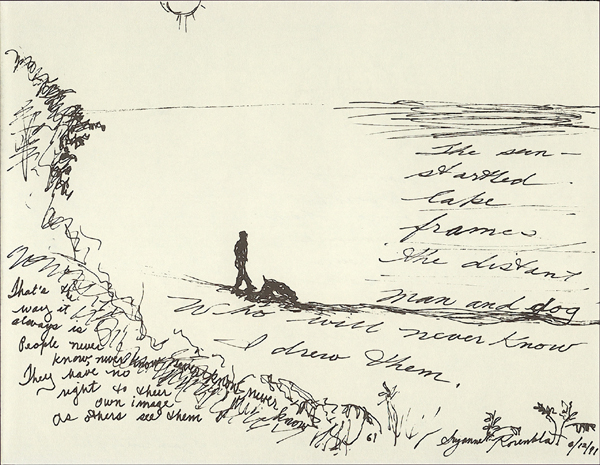 The sun-
startled
lake
frames
the distant
man and dog
who will never know
I drew them.
That's the
way it
always is
People never
know never know never know never know never
They have no know
right to their
own image
as others see them
61
Suzanne Rosenblatt
6/12/91